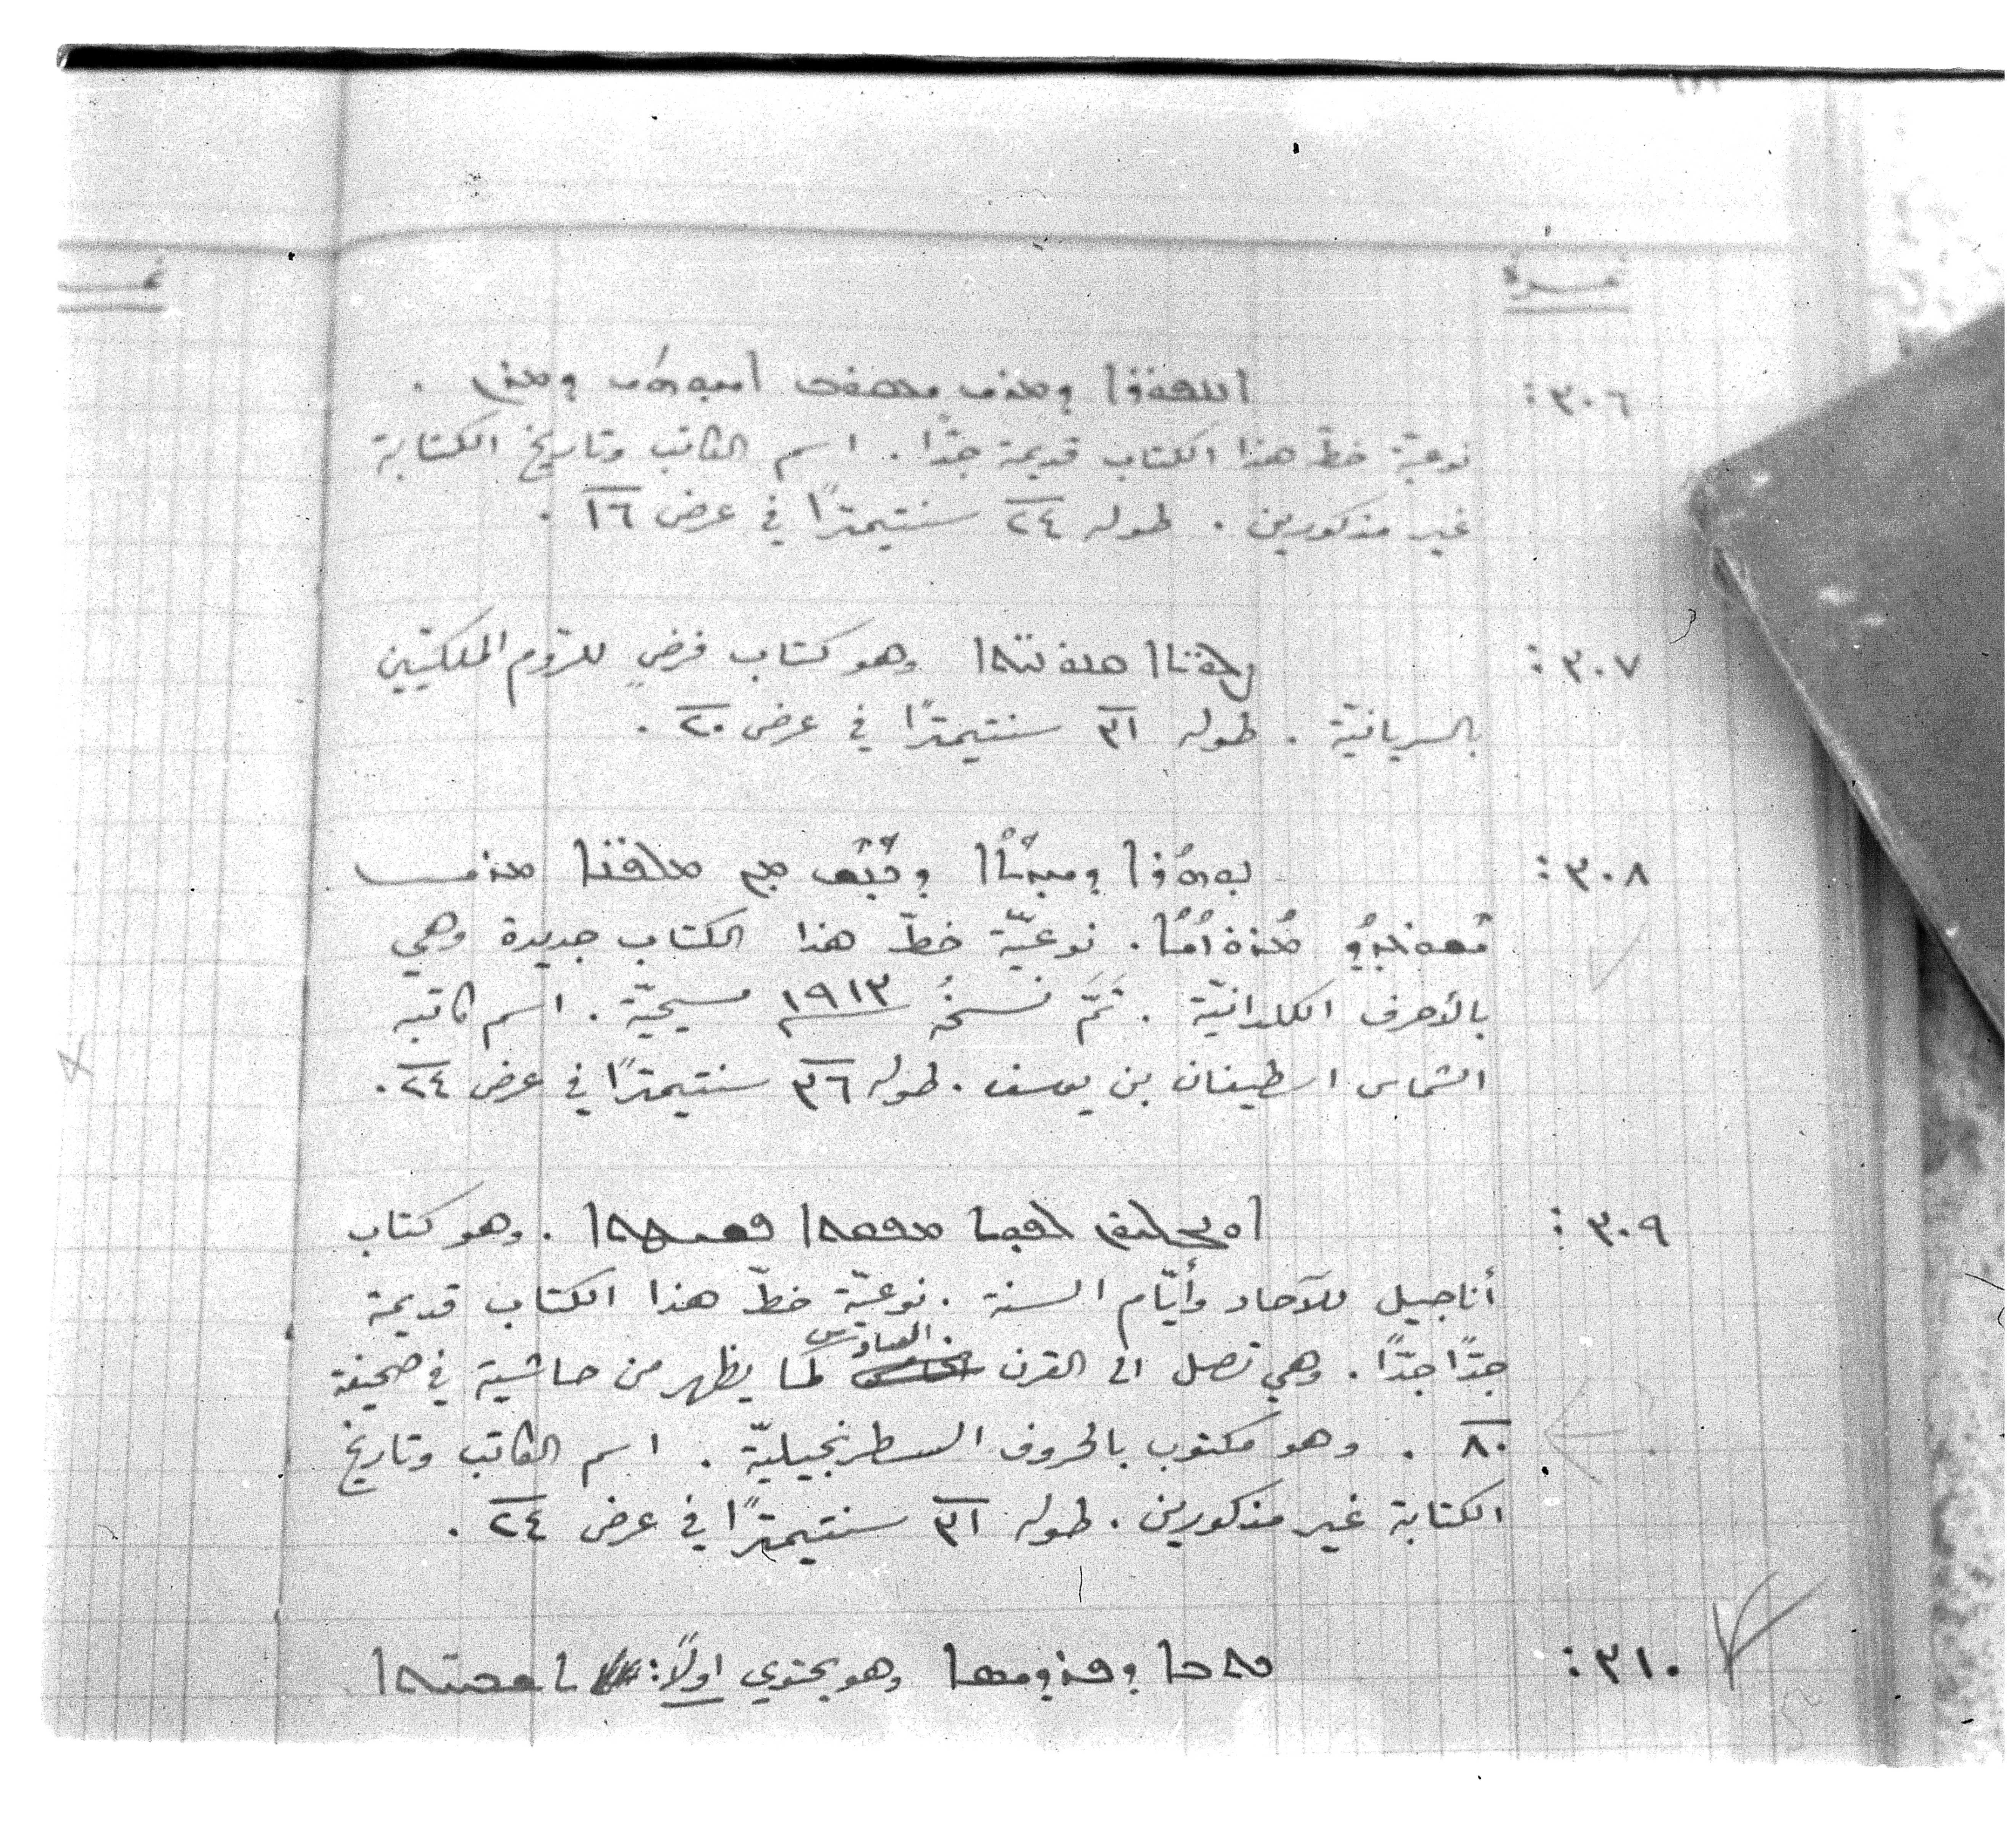 نمرة
٣٠٦: ܐܓܘܪܬܐ ܕܡܪܝ ܝܥܩܘܒ ܐܚܘܗܝ ܕܡܪܢ .
نوعيّة خطّ هذا الكتاب قديمة جدًّا . اسم الكاتب وتاريخ الكتابة
غير مذكورين . طوله ٢٤ سنتيمترًا في عرض ١٦ .
٣٠٧: وهو كتاب فرض للروم الملكيّين
بالسريانيّة . طوله ٣١ سنتيمترًا في عرض ٢٠ .
٣٠٨: ܡܢ ܡܠܦܢܐ ܡܪܝ
. نوعيّة خطّ هذا الكتاب جديدة وهي
بالأحرف الكلدانيّة . تمّ نسخُه ١٩١٣ مسيحيّة . اسم كاتبه
الشماس اسطيفان بن يوسف . طوله ٣٦ سنتيمترًا في عرض ٢٤ .
٣٠٩: ܐܘܢܓܠܝܘܢ ܦܫܝܛܬܐ . وهو كتاب
أناجيل للآحاد وأيّام السنة . نوعيّة خطّ هذا الكتاب قديمة
جدًّا جدًّا . وهي تصل الى القرن السادس كما يظهر من حاشية في صحيفة
٨٠ . وهو مكتوب بالحروف السطرنجيليّة . اسم الكاتب وتاريخ
الكتابة غير مذكورين . طوله ٣١ سنتيمترًا في عرض ٢٤ .
٣١٠: ܟܬܒܐ ܕܦܪܕܝܣܐ وهو يحتوي اولًا :